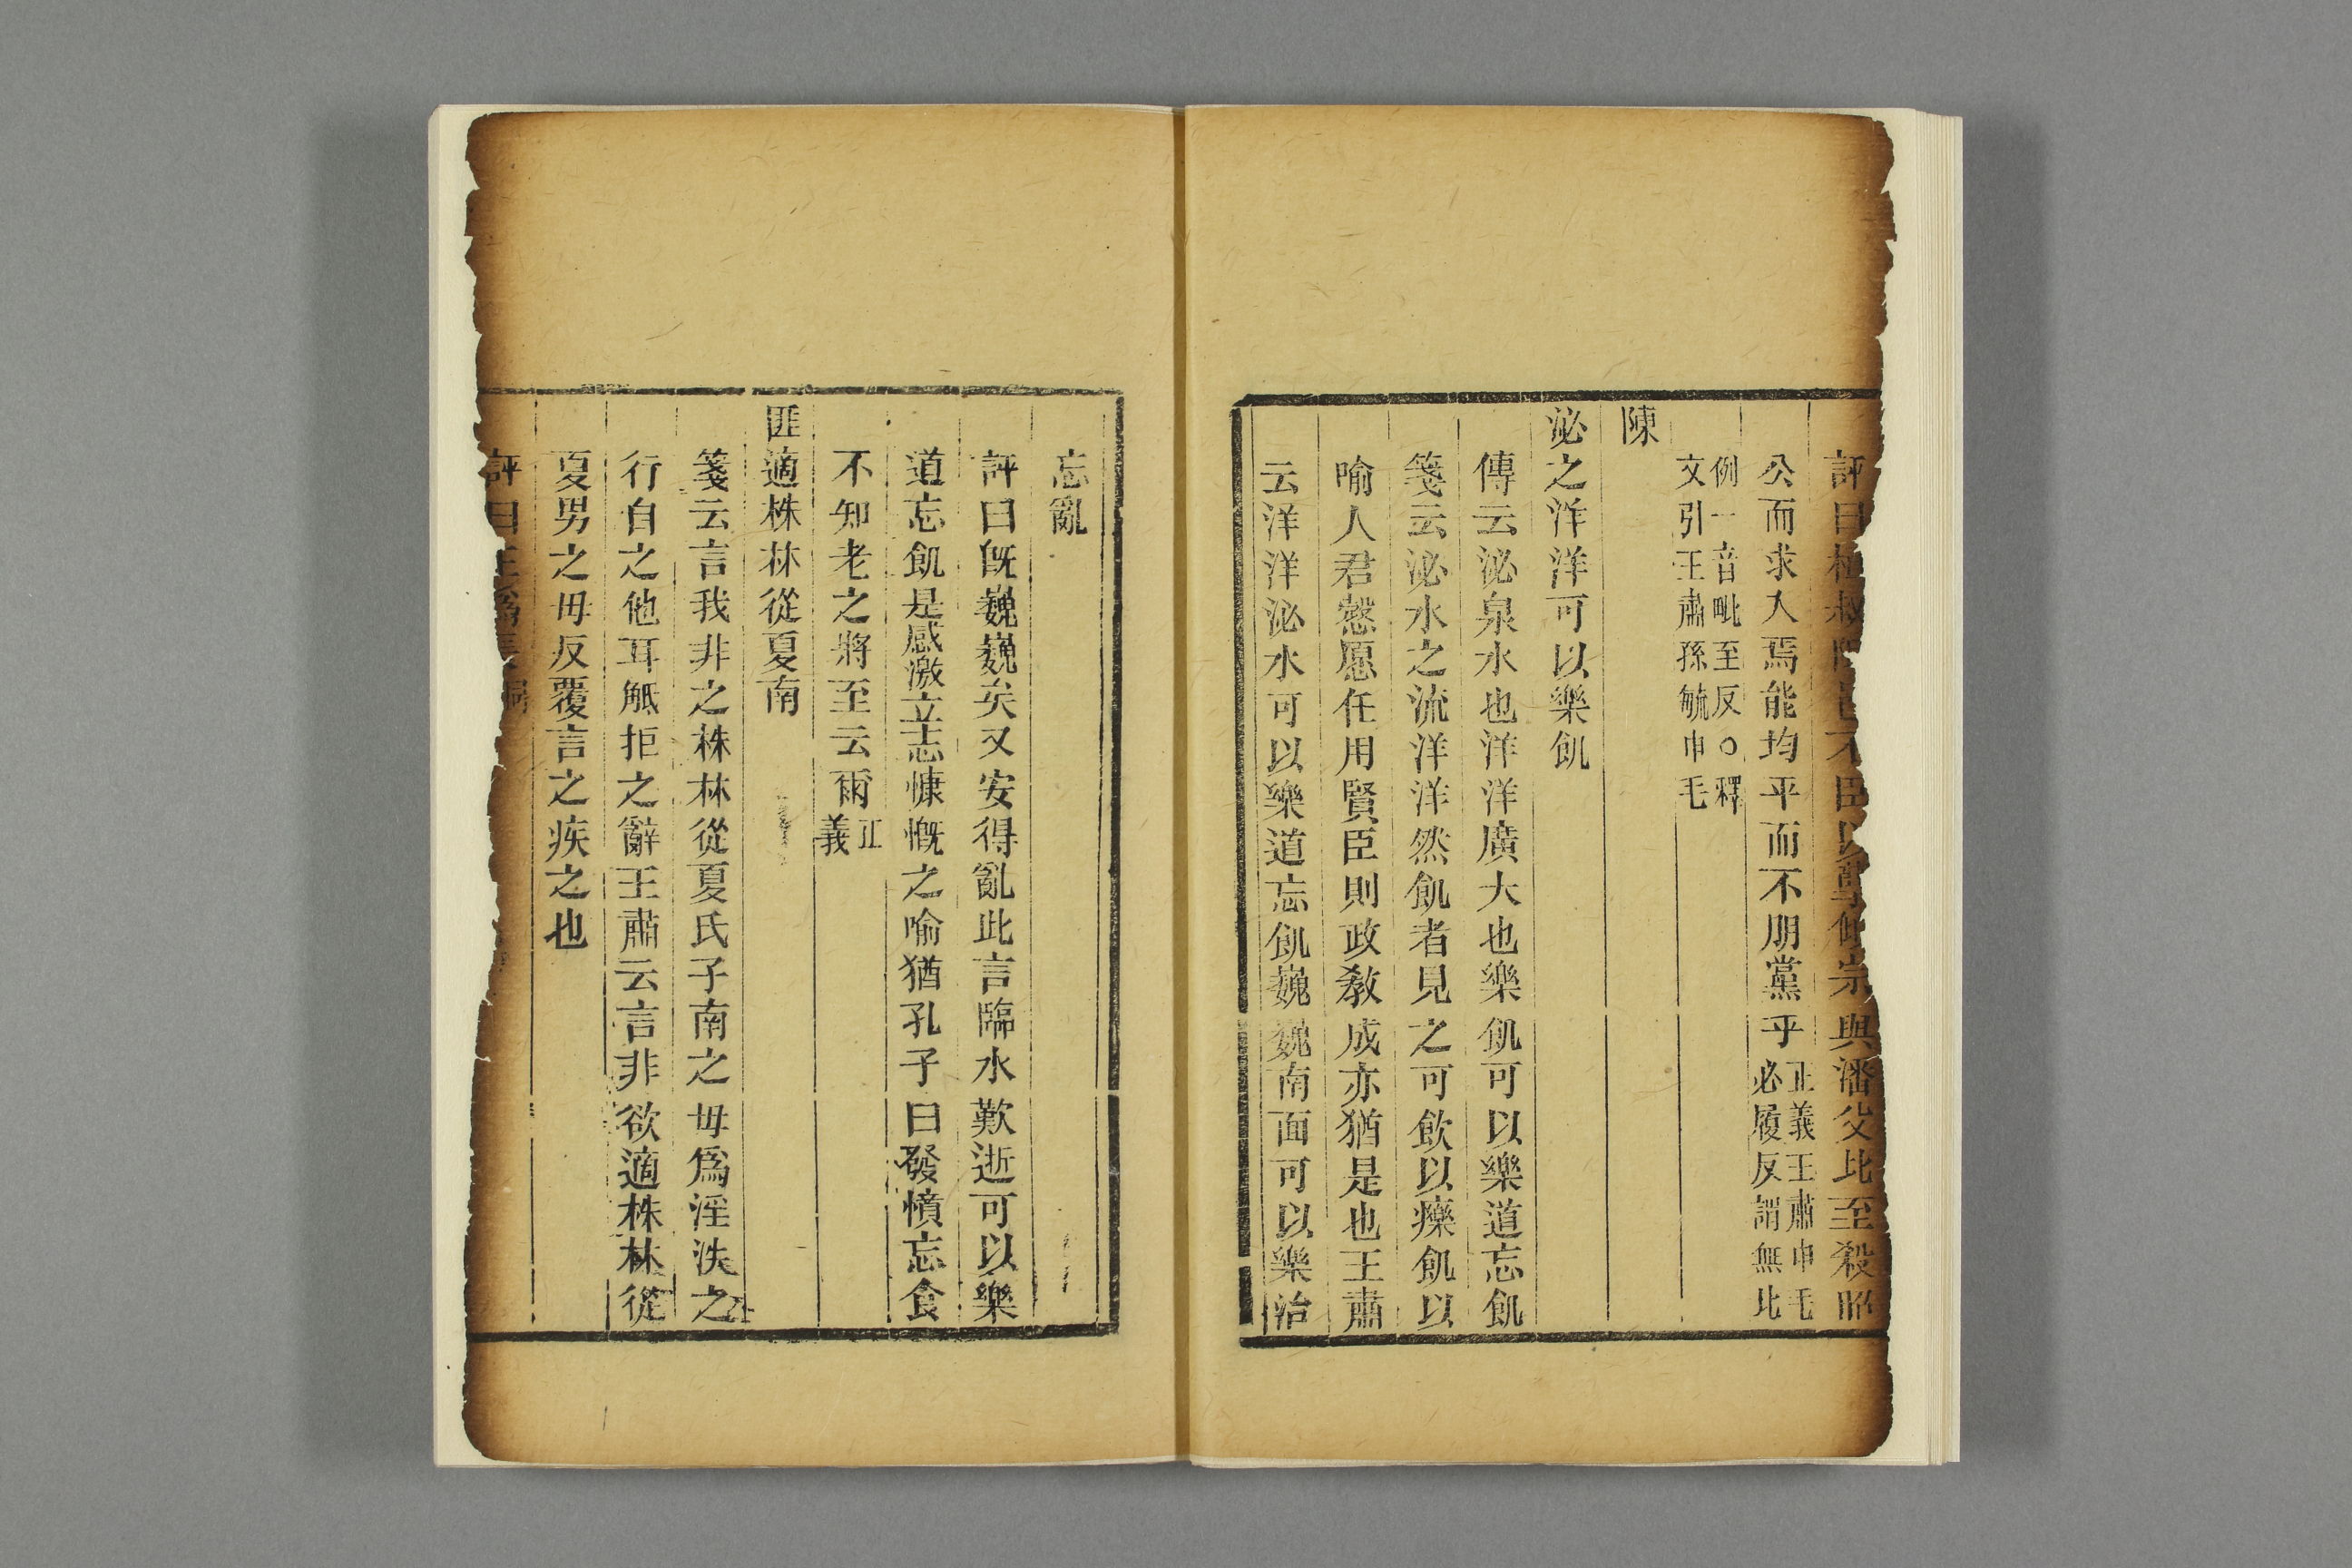 評曰桓叔阻邑不臣以孽傾宗與潘父比至殺昭
公而求人焉能均平而不朋黨乎正義王肅申毛必履反謂無比
例一音毗至反○釋文引王肅孫毓申毛
陳
泌之洋洋可以樂飢
傳云泌泉水也洋洋廣大也樂飢可以樂道忘飢
箋云泌水之流洋洋然飢者見之可飲以㿋飢以
喻人君慤愿任用賢臣則政教成亦猶是也王肅
云洋洋泌水可以樂道忘飢巍巍南面可以樂治
忘亂
評曰旣巍巍矣又安得亂此言臨水歎逝可以樂
道忘飢是感激立志慷慨之喻猶孔子曰發憤忘食
不知老之將至云爾正義
匪適株林從夏南
箋云言我非之株林從夏氏子南之母爲淫泆之
行自之他耳觝拒之辭王肅云言非欲適株林從
夏男之母反覆言之疾之也
評曰王爲長